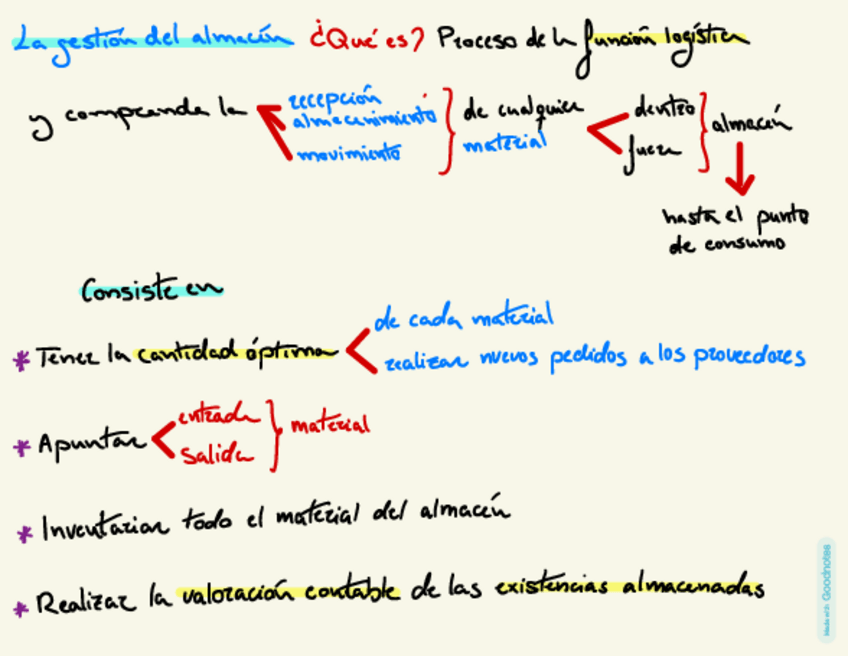 La gestión del almacén ¿Qué es? Proceso de la función logística
y comprende la
recepción
almacenimiento
movimiento
de cualquier
material
dentro
fuera
almacén
hasta el punto
de consumo
Consiste en
* Tener la cantidad óptima
de cada material
realizar nuevos pedidos a los proveedores
* Apuntar
entrada
salida
material
* Inventariar todo el material del almacén
* Realizar la valoración contable de las existencias almacenadas
Made with Goodnotes